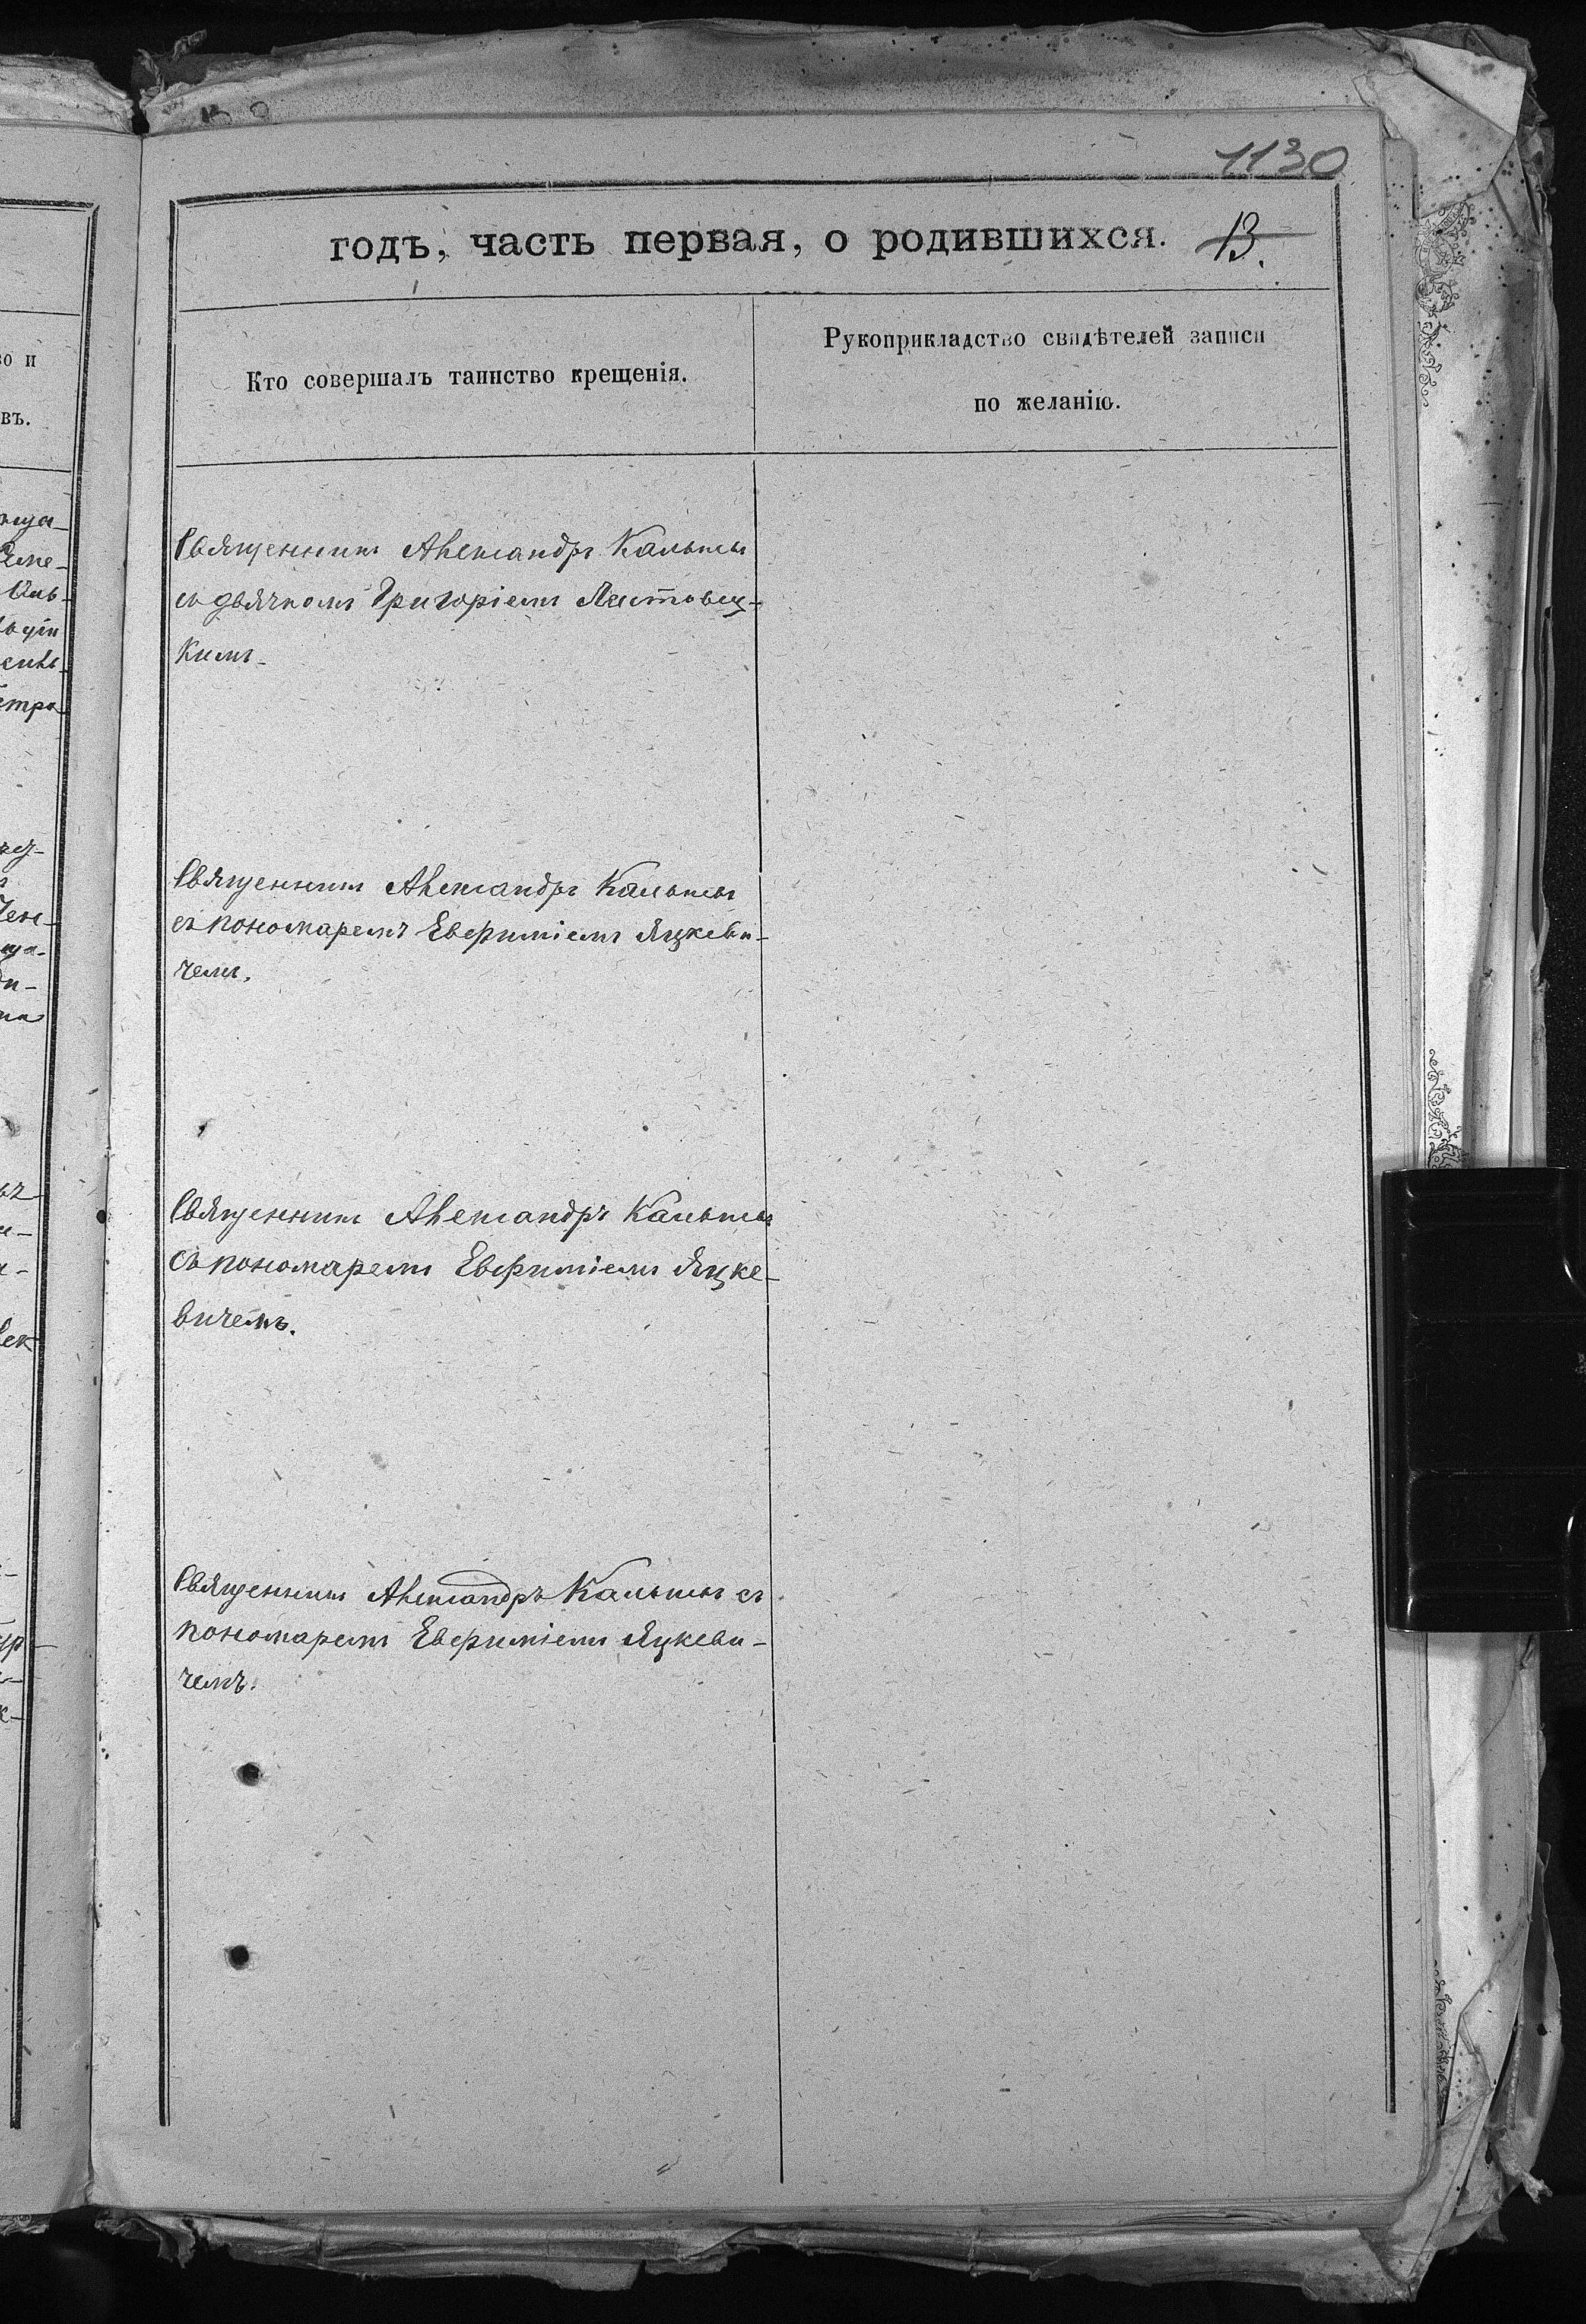 1130
годъ, часть первая, о родившихся. 13.
Кто совершалъ таинство крещенія.
Рукоприкладство свидѣтелей записи
по желанію.
Священникъ Александръ
съ дьячкомъ Григоріемъ Листовец-
кимъ
Священникъ Александръ
съ пономаремъ Евфиміемъ Яцкеви-
чемъ.
Священникъ Александръ
съ пономаремъ Евфиміемъ Яцке-
вичемъ.
Священникъ Александръ съ
пономаремъ Евфиміемъ Яцкеви-
чемъ.